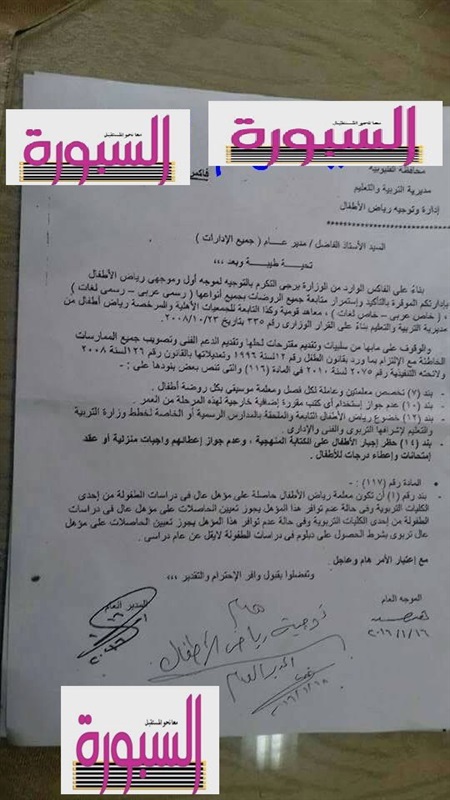 معا نحو المستقبل
السبورة
معا نحو المستقبل
السبورة
فاكس
محافظة القليوبية
مديرية التربية والتعليم
إدارة وتوجيه رياض الأطفال
السيد الأستاذ الفاضل / مدير عام ( جميع الإدارات )
تحية طيبة وبعد ،،،
بناء على الفاكس الوارد من الوزارة يرجى التكرم بالتوجيه لموجه أول وموجهى رياض الأطفال
بإدارتكم الموقرة بالتأكيد وإستمرار متابعة جميع الروضات بجميع أنواعها ( رسمى عربى – رسمى لغات )
، ( خاص عربى – خاص لغات ) ، معاهد قومية وكذا التابعة للجمعيات الأهلية والمرخصة رياض أطفال من
مديرية التربية والتعليم بناءً على القرار الوزارى رقم ٣٣٥ بتاريخ ٢٠٠٨/١٠/٢٣.
والوقوف على مابها من سلبيات وتقديم مقترحات لحلها وتقديم الدعم الفنى وتصويب جميع الممارسات
الخاطئة مع الإلتزام بما ورد بقانون الطفل رقم ١٢ لسنة ١٩٩٦ وتعديلاتها بالقانون رقم ١٢٦ لسنة ٢٠٠٨
ولائحته التنفيذية رقم ٢٠٧٥ لسنة ٢٠١٠ فى المادة (١١٦) والتى تنص بعض بنودها على : -
- بند (٧) تخصص معلمتين وعاملة لكل فصل ومعلمة موسيقى بكل روضة أطفال .
- بند (١٠) عدم جواز إستخدام أى كتب مقررة إضافية خارجية لهذه المرحلة من العمر .
- بند (١٢) خضوع رياض الأطفال التابعة والملحقة بالمدارس الرسمية أو الخاصة لخطط وزارة التربية
والتعليم لإشرافها التربوى والفنى والإدارى .
- بند (١٤) حظر إجبار الأطفال على الكتابة المنهجية ، وعدم جواز إعطائهم واجبات منزلية أو عقد
إمتحانات وإعطاء درجات للأطفال .
• المادة رقم (١١٧) :
- بند رقم (١) أن تكون معلمة رياض الأطفال حاصلة على مؤهل عال فى دراسات الطفولة من إحدى
الكليات التربوية وفى حالة عدم توافر هذا المؤهل يجوز تعيين الحاصلات على مؤهل عال فى دراسات
الطفولة من إحدى الكليات التربوية وفى حالة عدم توافر هذا المؤهل يجوز تعيين الحاصلات على مؤهل
عال تربوى بشرط الحصول على دبلوم فى دراسات الطفولة لايقل عن عام دراسى .
مع إعتبار الأمر هام وعاجل .
وتفضلوا بقبول وافر الإحترام والتقدير ،،،
الموجه العام
المدير العام
٢٠١٦/١/١٦
هام
توجيه رياض الأطفال
المدير العام
معا نحو المستقبل
السبورة